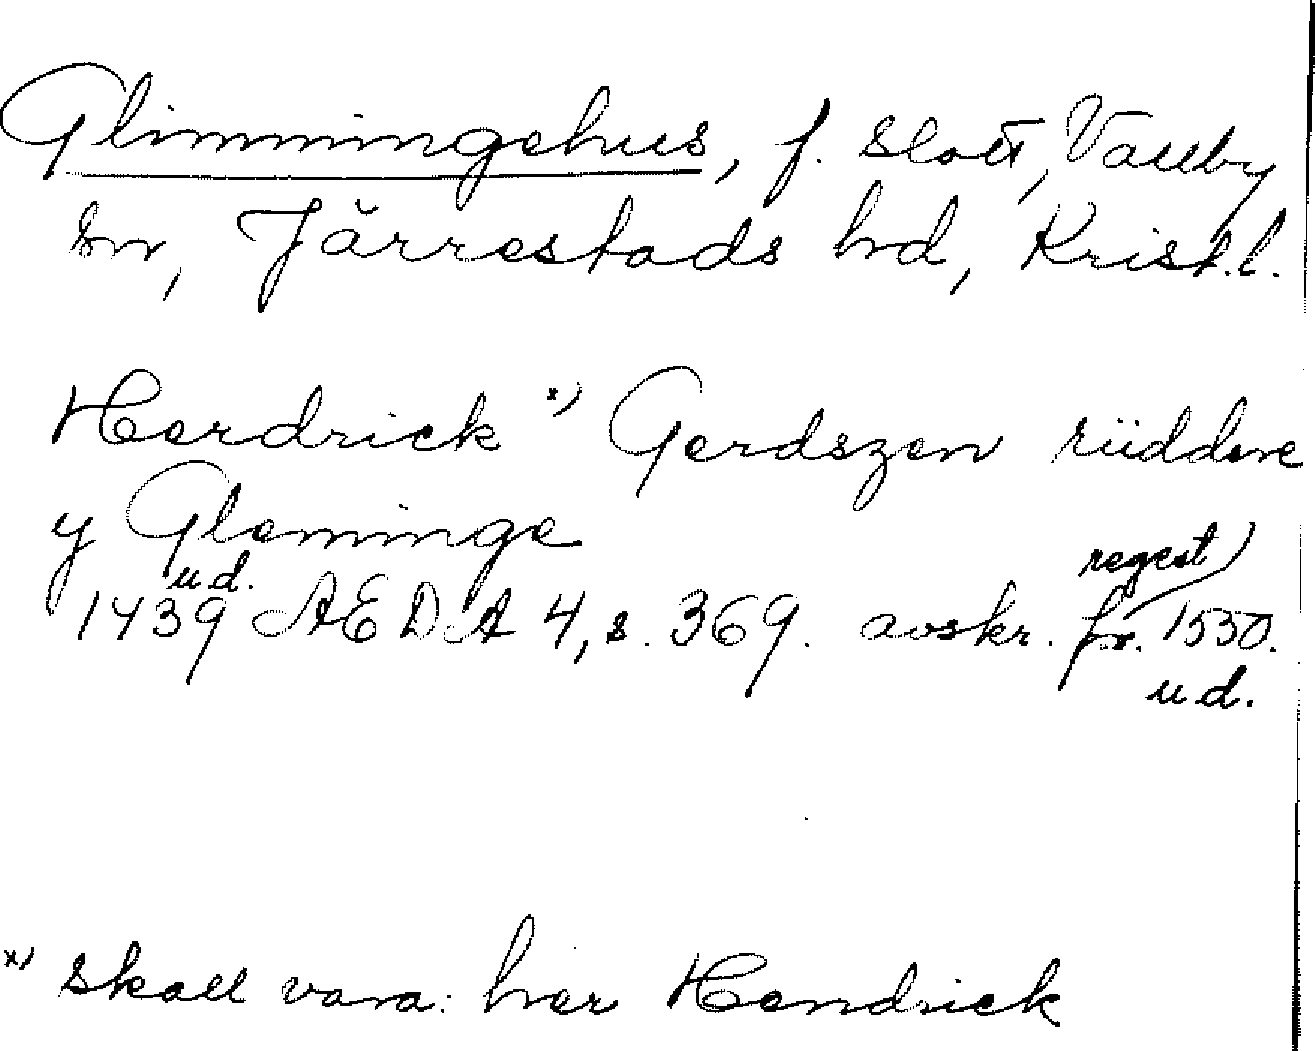 Glimmingehus, f. slott, Vallby
sn, Järrestads hd, Krist.l.
Herdrick *) Gerdszen rüddere
y Gleminge
u.d. regest)
1439 AEDA 4, s. 369. avskr. fr. 1550.
u.d.
*) skall vara: her Hendrick